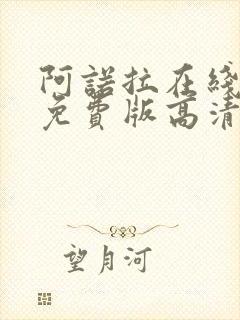 阿諾拉在綫
免費版高清
望月河